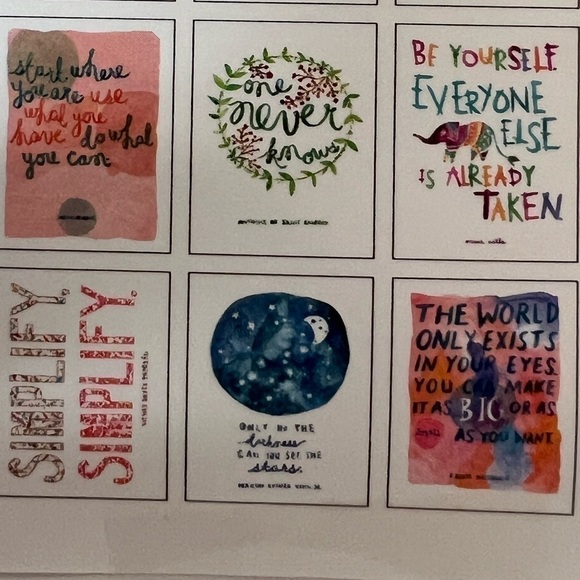 start where
you are use
what you
have do what
you can.
one
never
knows
BE YOURSELF.
EVERYONE
ELSE
IS ALREADY
TAKEN
SIMPLIFY,
SIMPLIFY.
ONLY IN THE
darkness
CAN YOU SEE THE
stars.
THE WORLD
ONLY EXISTS
IN YOUR EYES.
YOU CAN MAKE
IT AS BIG OR AS
AS YOU WANT